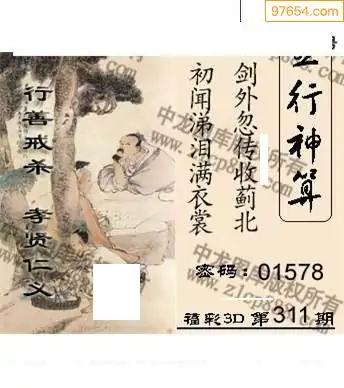 97654.com
行神算
剑外忽传收蓟北
初闻涕泪满衣裳
行善戒杀 孝贤仁义
密码：01578
福彩3D 第311期
中龙图库版权所有
中龙图库版权所有